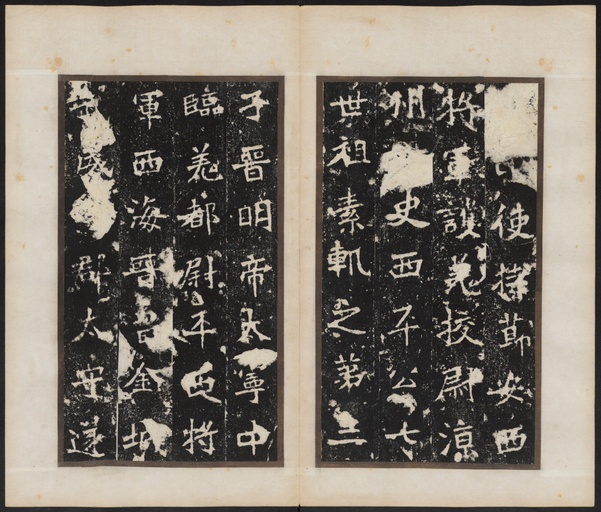 使持節安西
將軍護羌校尉涼
州史西平公七
世祖素軌之第三
子晉明帝大寧中
臨羌都尉平西將
軍西海晉昌金城
武威郡太守遂